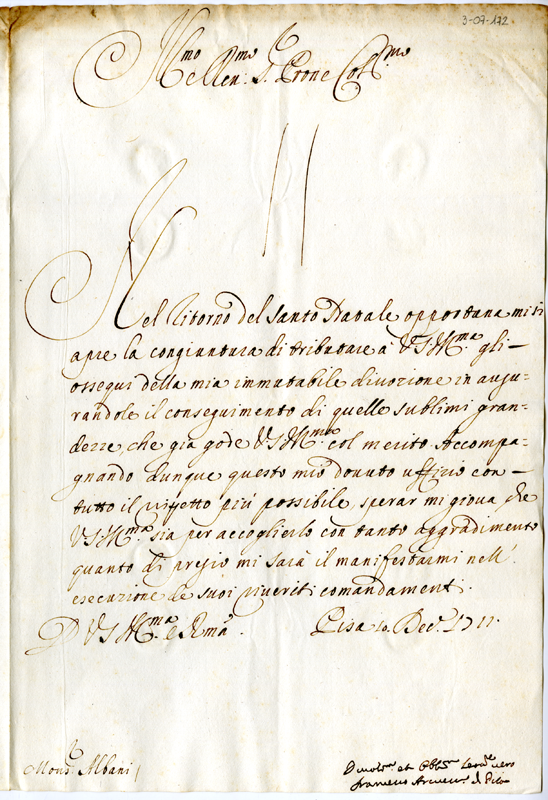 3-07-172
Ill.mo e Rev.mo Sig.r Prone Col.mo
Nel ritorno del Santo Natale opportuna mi si
apre la congiuntura di tributare à V S Ill.ma gli
ossequi della mia immutabile divozione in augu-
randole il conseguimento di quelle sublimi gran-
dezze, che già gode V S Ill.ma col merito. Accompa-
gnando dunque questo mio dovuto uffizio con
tutto il rispetto più possibile, sperar mi giova che
V S Ill.ma sia per accoglierlo con tanto aggradimento
quanto di pregio mi sarà il manifestarmi nell'
esecuzione de suoi riveriti comandamenti.
D V S Ill.ma e Rma Pisa 10 Dec. 1711.
Mons.r Albani
Devot.mo et Obb.mo vero
Francesco Arcivesc. di Pisa